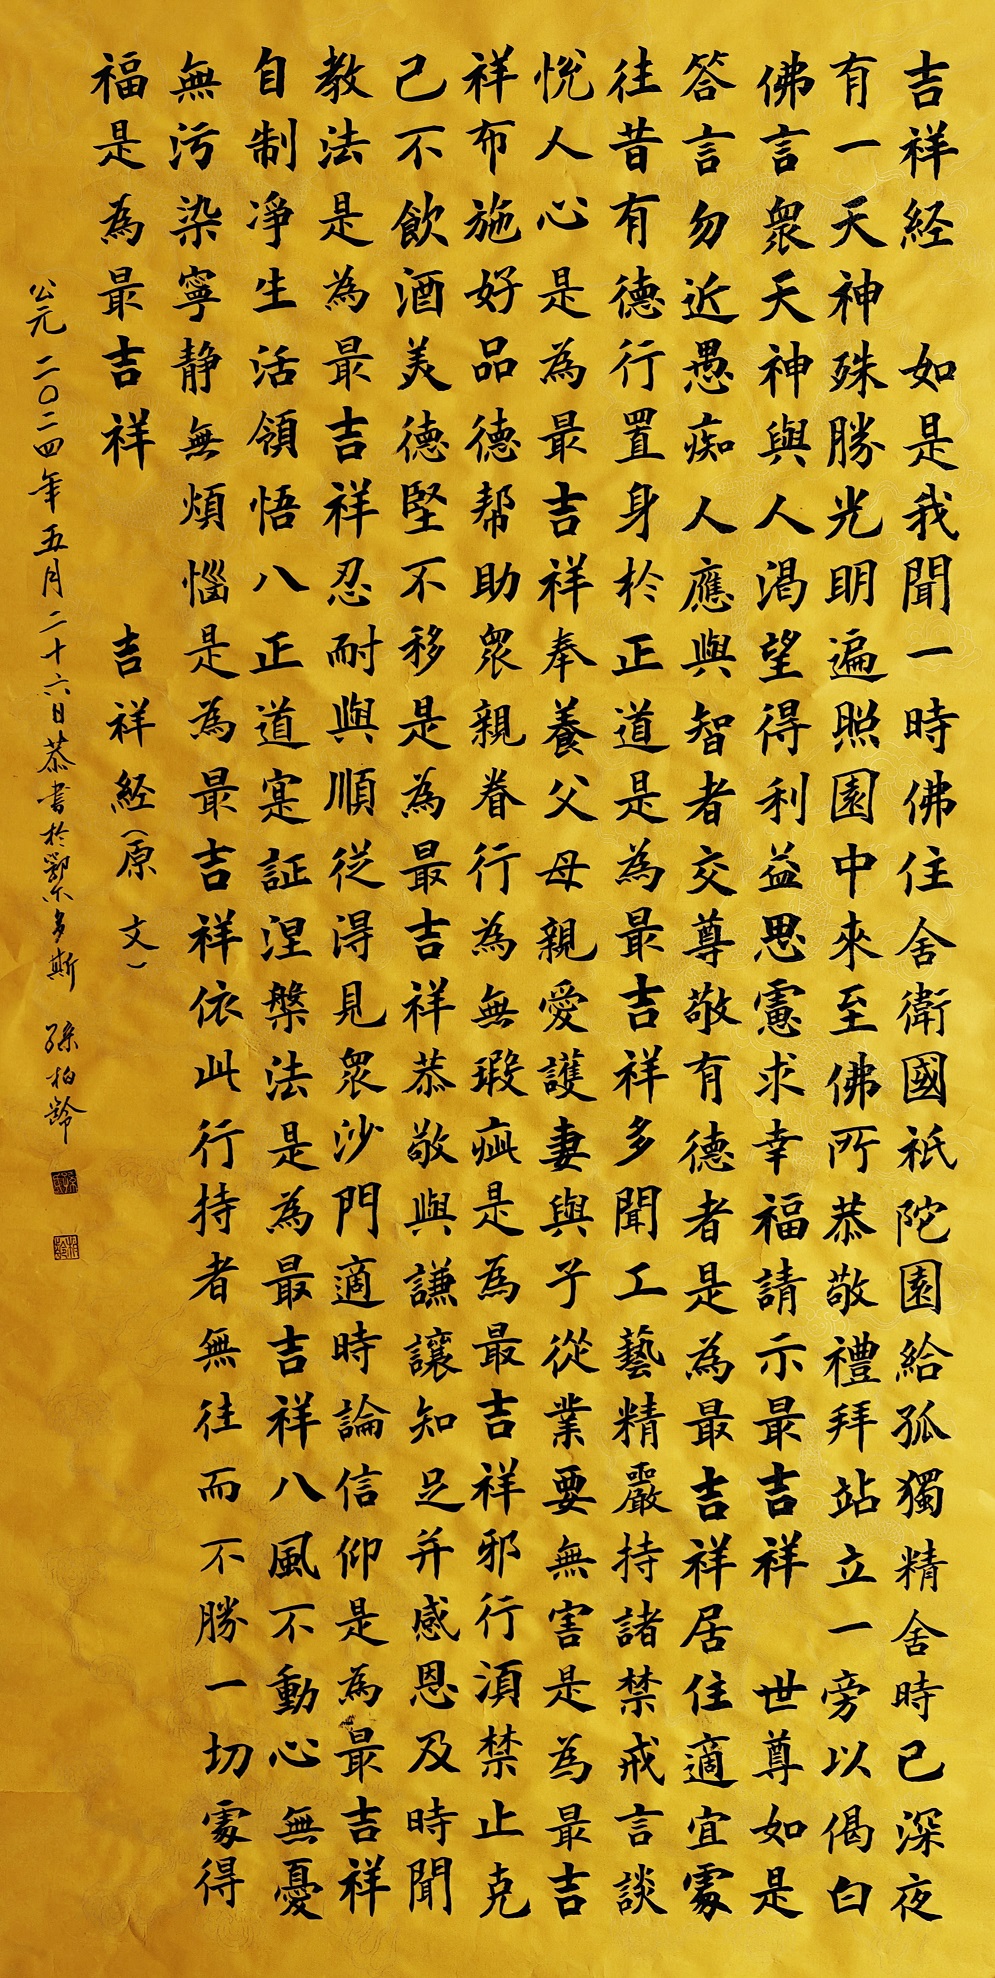 吉祥経 如是我聞一時佛住舍衛國祇陀園給孤獨精舍時已深夜
有一天天神殊勝光明遍照園中來至佛所恭敬禮拜站立一旁以偈白
佛言衆天神與人渴望得利益思慮求幸福請示最吉祥 世尊如是
答言勿近愚痴人應與智者交尊敬有德者是為最吉祥居住適宜處
往昔有德行置身於正道是為最吉祥多聞工藝精嚴持諸禁戒言談
悅人心是為最吉祥奉養父母親愛護妻與子從業要無害是為最吉
祥布施好品德帮助衆親眷行為無瑕疵是為最吉祥邪行須禁止克
己不飲酒美德堅不移是為最吉祥恭敬與謙讓知足并感恩及時聞
教法是為最吉祥忍耐與順従得見衆沙門適時論信仰是為最吉祥
自制凈生活領悟八正道寔証涅槃法是為最吉祥八風不動心無憂
無污染寧静無煩惱是為最吉祥依此行持者無往而不勝一切處得
福是為最吉祥 吉祥経(原文)
公元二〇二四年五月二十六日恭書於鄂尔多斯 孫柏齡